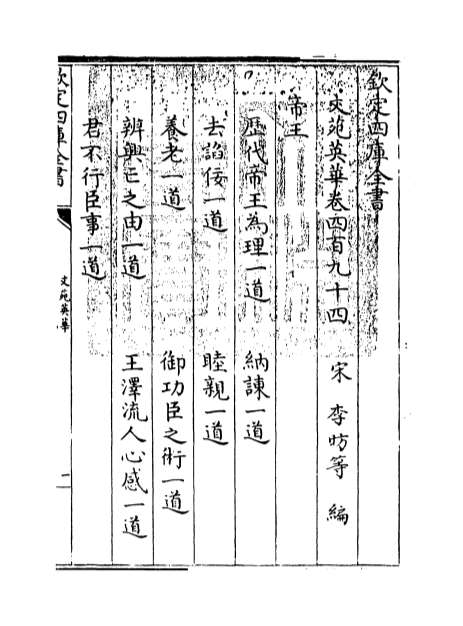 欽定四庫全書
文苑英華卷四百九十四
宋 李昉等 編
帝王
歴代帝王為理一道 納諫一道
去諂佞一道 睦親一道
養老一道 御功臣之術一道
辨興亡之由一道 王澤流人心感一道
君不行臣事一道
欽定四庫全書
文苑英華
一